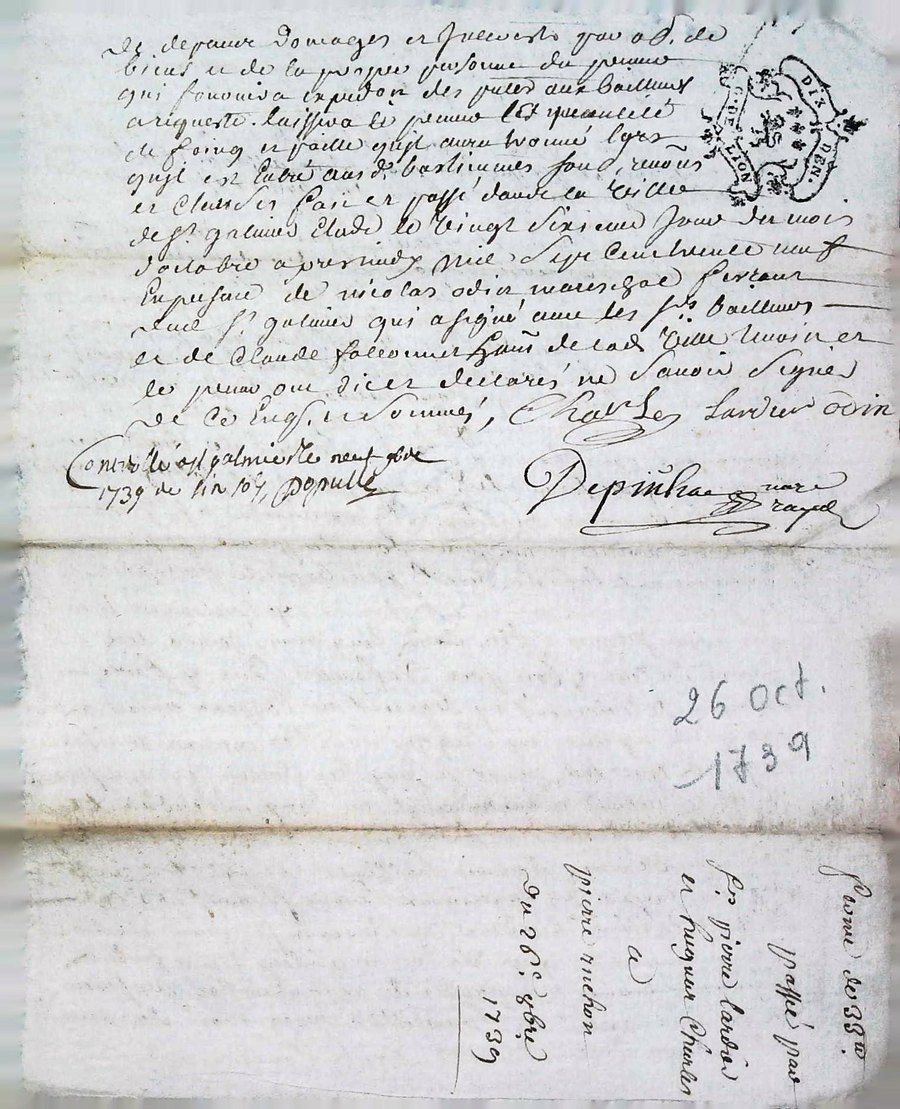 de depans domages et Interests par obs. de
biens et de la propre personne du preneur
qui fournira expedion des putes aux bailleurs
a requeste. laissera le preneur les
de foing et paille quil aura trouvé lors
quil est Entré aud. bastimmes
et Clauses fait et passé dans la Ville
de St galmier Etude le Vingt Sixieme Jour du mois
doctobre apres midy mil Sept Cent trente neuf
En presance de nicolas odin mareschal ferrant
dud St galmier qui a signé avec les srs bailleurs
et de Claude de lad Ville temoin et
le preneur ont declarés ne Scavoir Signer
de ce Enqs. et Sommés, Charles Lardier Odin
Controllé a St galmier le neuf 9bre
1739 Depulle
Depinhac nore
royal
G. DE LION
DIX DEN.
26 Oct.
1739
ferme de 33#
passé par
srs pierre lardier
et hugue Charles
a
pierre michon
Du 26e 8bre
1739